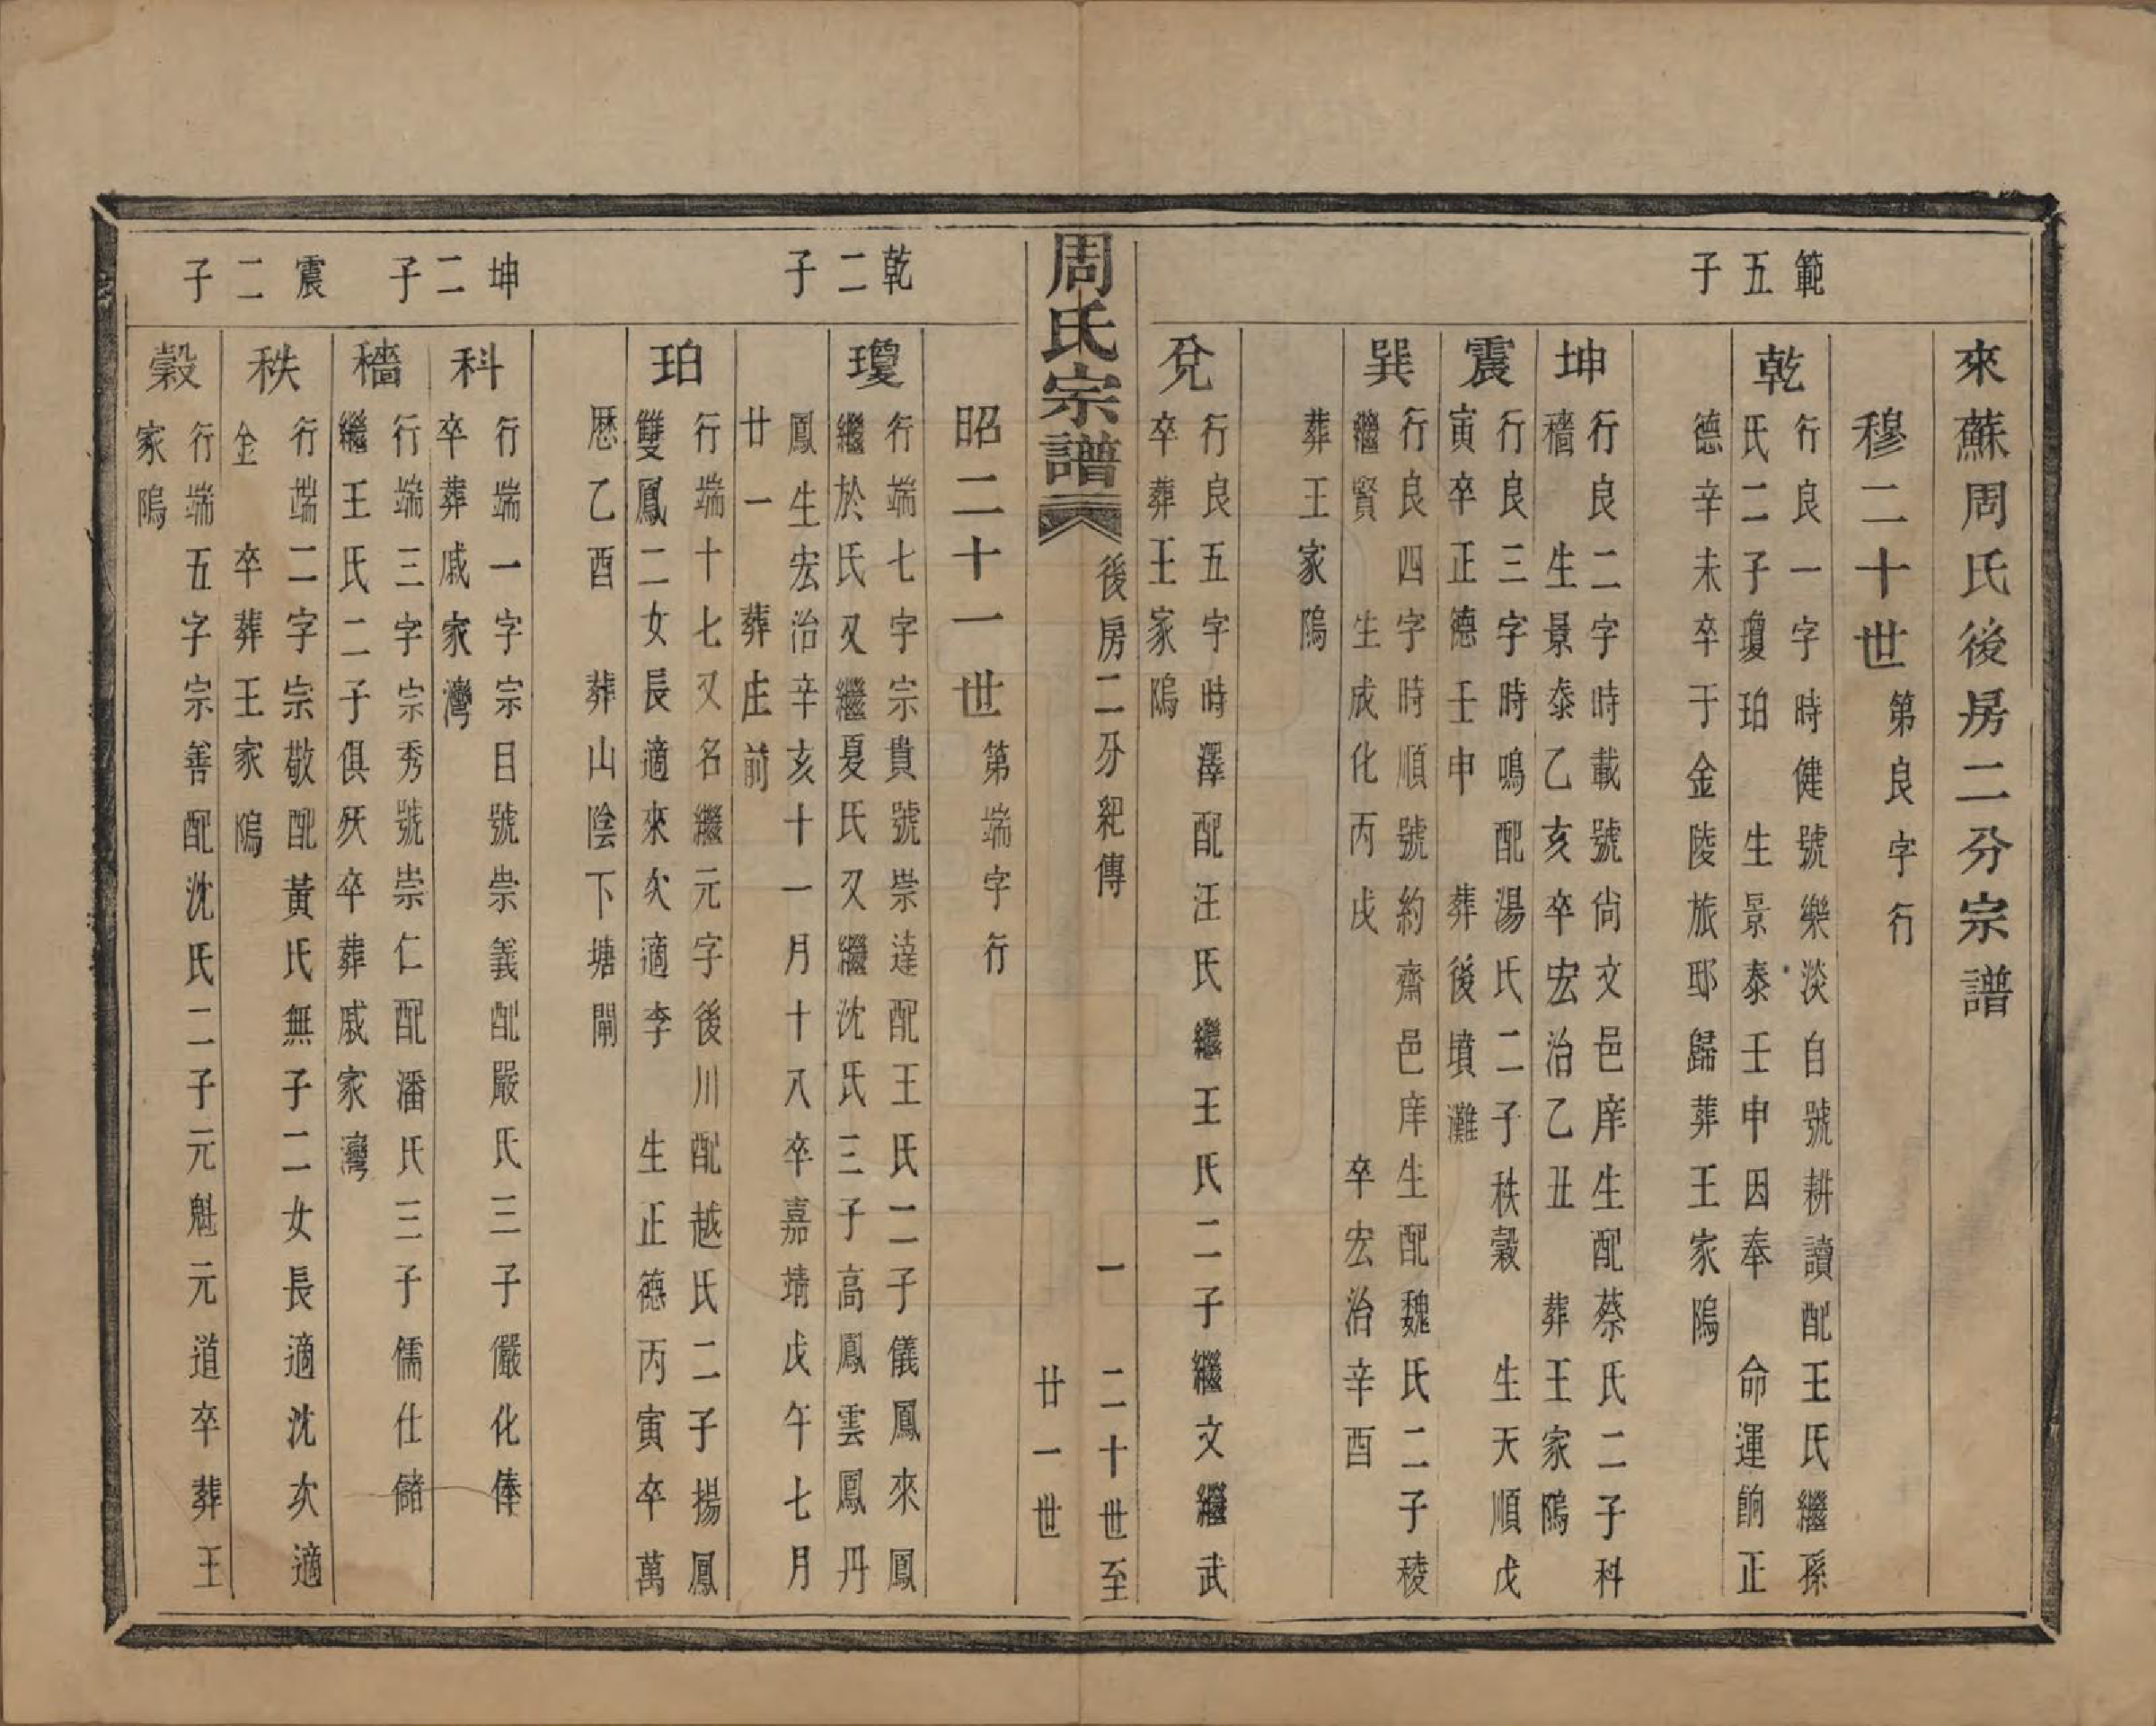 來蘇周氏後房二分宗譜
穆二十世 第良字行
範五子
乾 行良一字時健號樂淡自號耕讀配王氏繼孫
氏二子瓊珀 生景泰壬申因奉 命運餉正
德辛未卒于金陵旅邸歸葬王家隖
坤 行良二字時載號尙文邑庠生配蔡氏二子科
穡 生景泰乙亥卒宏治乙丑 葬王家隖
震 行良三字時鳴配湯氏二子秩穀 生天順戊
寅卒正德壬申 葬後墳灘
巽 行良四字時順號約齋邑庠生配魏氏二子稜
繼賢 生成化丙戌 卒宏治辛酉
葬王家隖
兌 行良五字時澤配汪氏繼王氏二子繼文繼武
卒葬王家隖
周氏宗譜 後房二分紀傳 一 二十世至
廿一世
昭二十一世 第端字行
乾二子
瓊 行端七字宗貴號崇達配王氏二子儀鳳來鳳
繼於氏又繼夏氏又繼沈氏三子高鳳雲鳳丹
鳳生宏治辛亥十一月十八卒嘉靖戊午七月
廿一 葬庄前
珀 行端十七又名繼元字後川配越氏二子揚鳳
雙鳳二女長適來次適李 生正德丙寅卒萬
歷乙酉 葬山陰下塘閘
坤二子
科 行端一字宗目號崇義配嚴氏三子儼化俸
卒葬戚家灣
穡 行端三字宗秀號崇仁配潘氏三子儒仕儲
繼王氏二子俱殀卒葬戚家灣
震二子
秩 行端二字宗敬配黃氏無子二女長適沈次適
金 卒葬王家隖
穀 行端五字宗善配沈氏二子元魁元道卒葬王
家隖